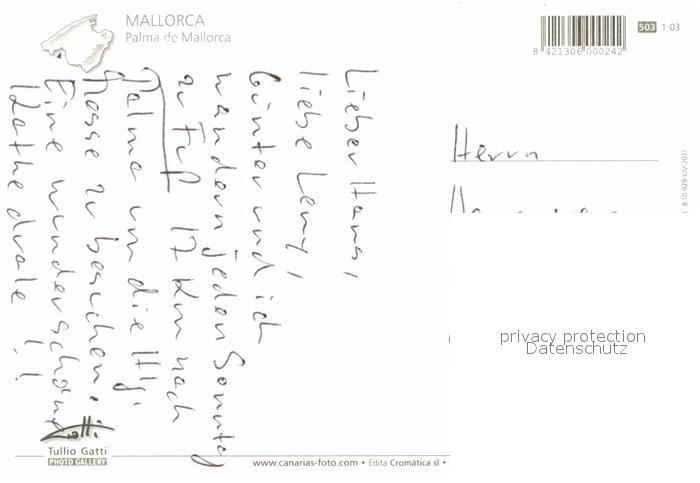 MALLORCA
Palma de Mallorca
8 421306 000242
503 1-03
Lieber Hans,
liebe Leny,
Günter und ich
wandern jeden Sonntag
zu Fuß 17 Km nach
Palma um die Hlg.
Messe zu besuchen.
Eine wunderschöne
Kathedrale !!
Herrn
privacy protection
Datenschutz
Tullio Gatti
PHOTO GALLERY
www.canarias-foto.com • Edita Cromática sl •